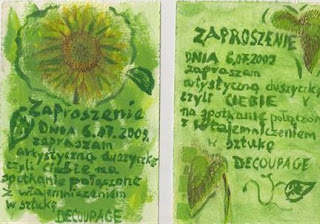 Zaproszenie
DNIA 6.07.2009.
zapraszam
artystyczną duszyczkę
czyli Ciebie na
spotkanie połączone
z wtajemniczeniem
w sztukę
DECOUPAGE
ZAPROSZENIE
DNIA 6.07.2009
zapraszam
artystyczną duszyczkę
czyli CIEBIE
na spotkanie połączone
z wtajemniczeniem
w sztukę
DECOUPAGE